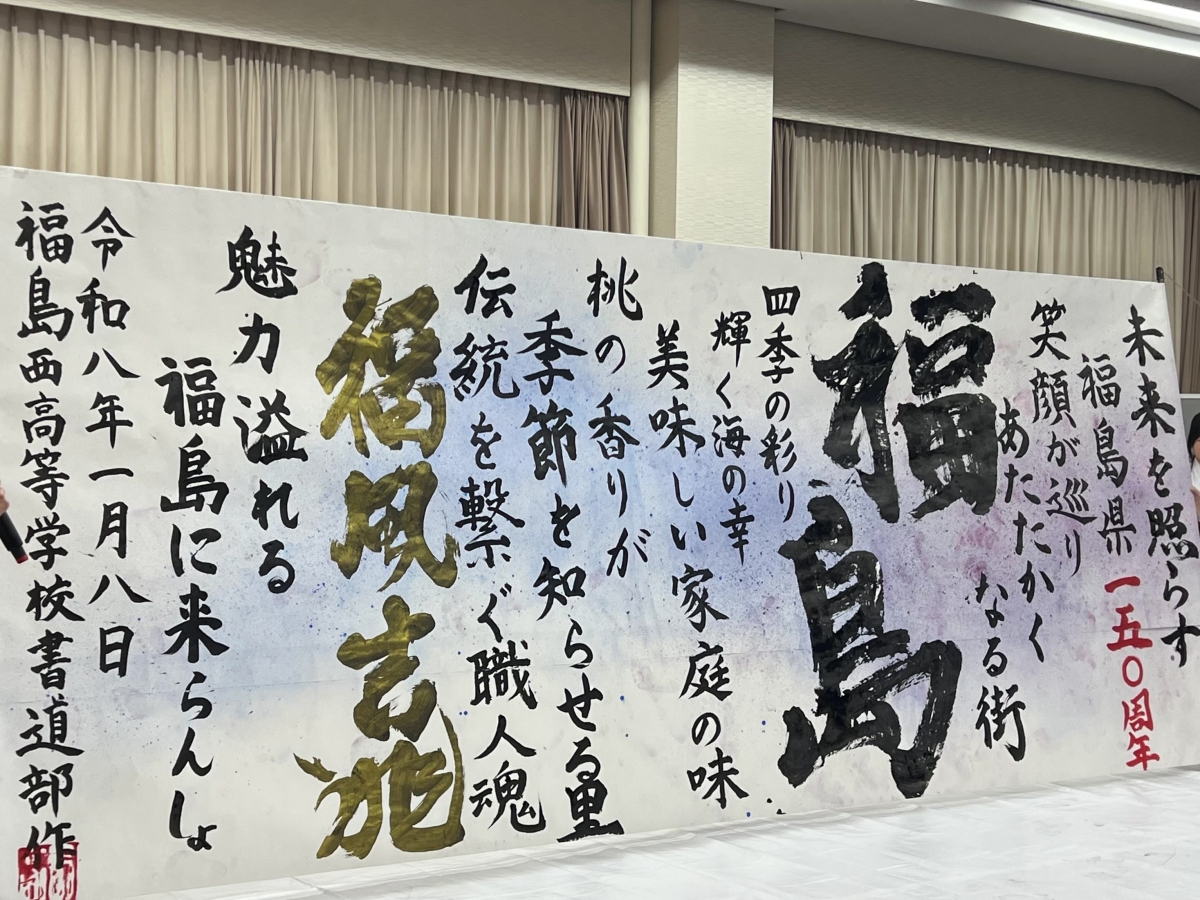 未来を照らす
福島県一五〇周年
笑顔が巡り
あたたかく
なる街
福島
四季の彩り
輝く海の幸
美味しい家庭の味
桃の香りが
季節を知らせる里
伝統を繋ぐ職人魂
福風吉兆
魅力溢れる
福島に来らんしょ
令和八年一月八日
福島西高等学校書道部作